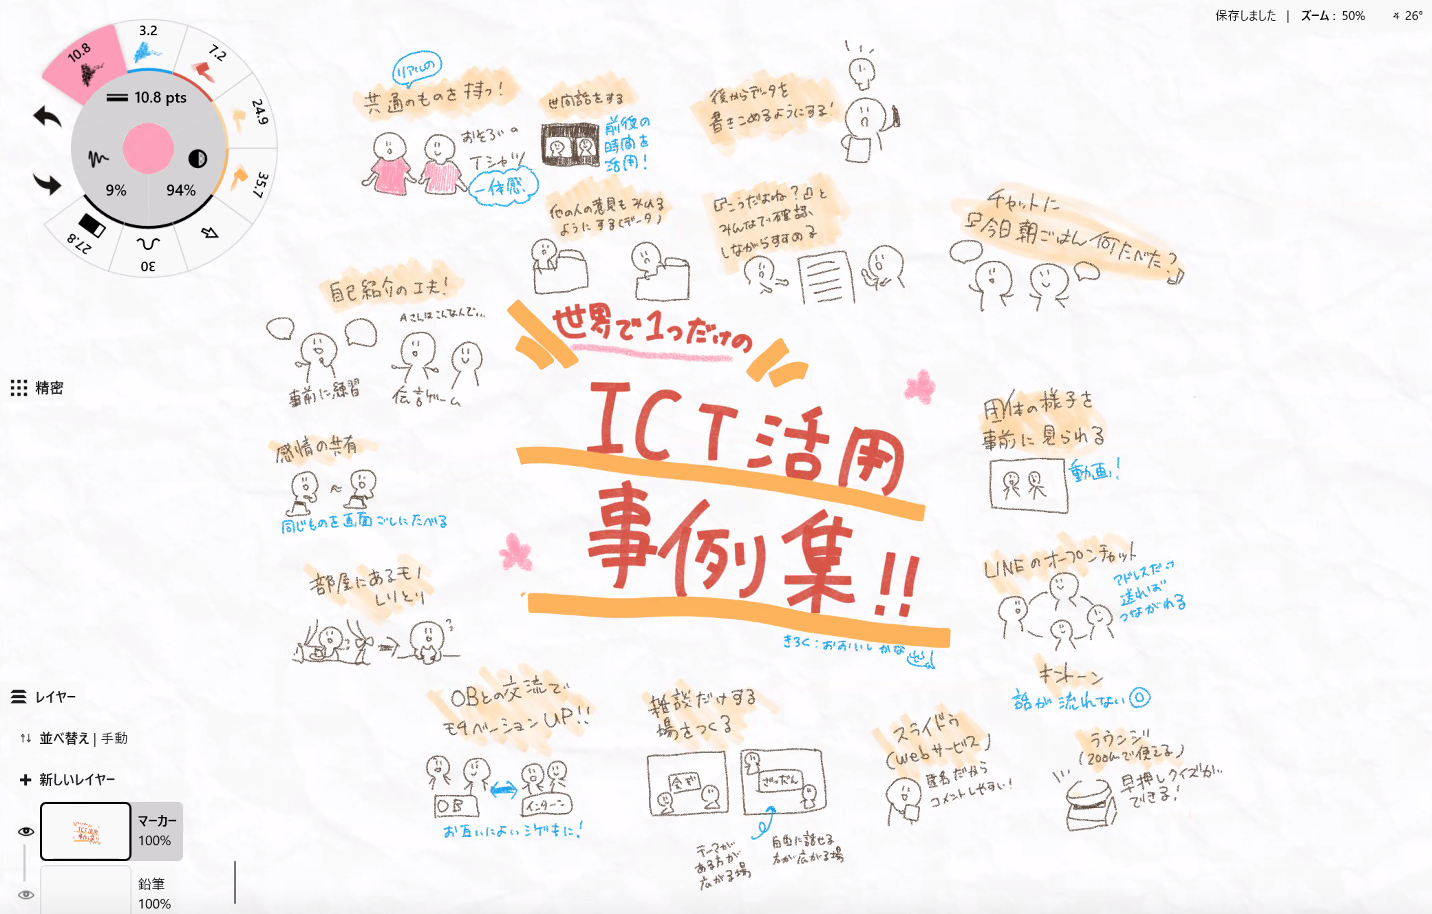 保存しました | ズーム： 50% 26°
10.8
3.2
7.2
24.9
35.7
27.8
30
10.8 pts
9%
94%
精密
レイヤー
並べ替え | 手動
新しいレイヤー
マーカー
100%
鉛筆
100%
リアルの
共通のものを持つ!
おそろいの
Tシャツ
一体感
世間話をする
前後の
時間を
活用!
後からデータを
書きこめるようにする!
他の人の意見もみれる
ようにする(データ)
『こうだよね?』と
みんなで確認、
しながらすすめる
チャットに
『今日朝ごはん何たべた?』
自己紹介の工夫!
Aさんはこんなんで…
事前に練習
伝言ゲーム
世界で1つだけの
ICT活用
事例集!!
きろく：おおいし かな
感情の共有
同じものを画面ごしにたべる
団体の様子を
事前に見られる
動画!
部屋にあるモノ
しりとり
LINEのオープンチャット
アドレスだけ
送れば
つながれる
キントーン
話が流れない◎
OBとの交流で
モチベーションUP!!
OB
インターン
お互いによいシゲキに!
雑談だけする
場をつくる
会ギ
ざつだん
テーマが
ある方が
広がる場
自由に話せる
方が広がる場
スライドゥ
(webサービス)
匿名だから
コメントしやすい!
ラウンジ
(zoomで使える)
早押しクイズが
できる!